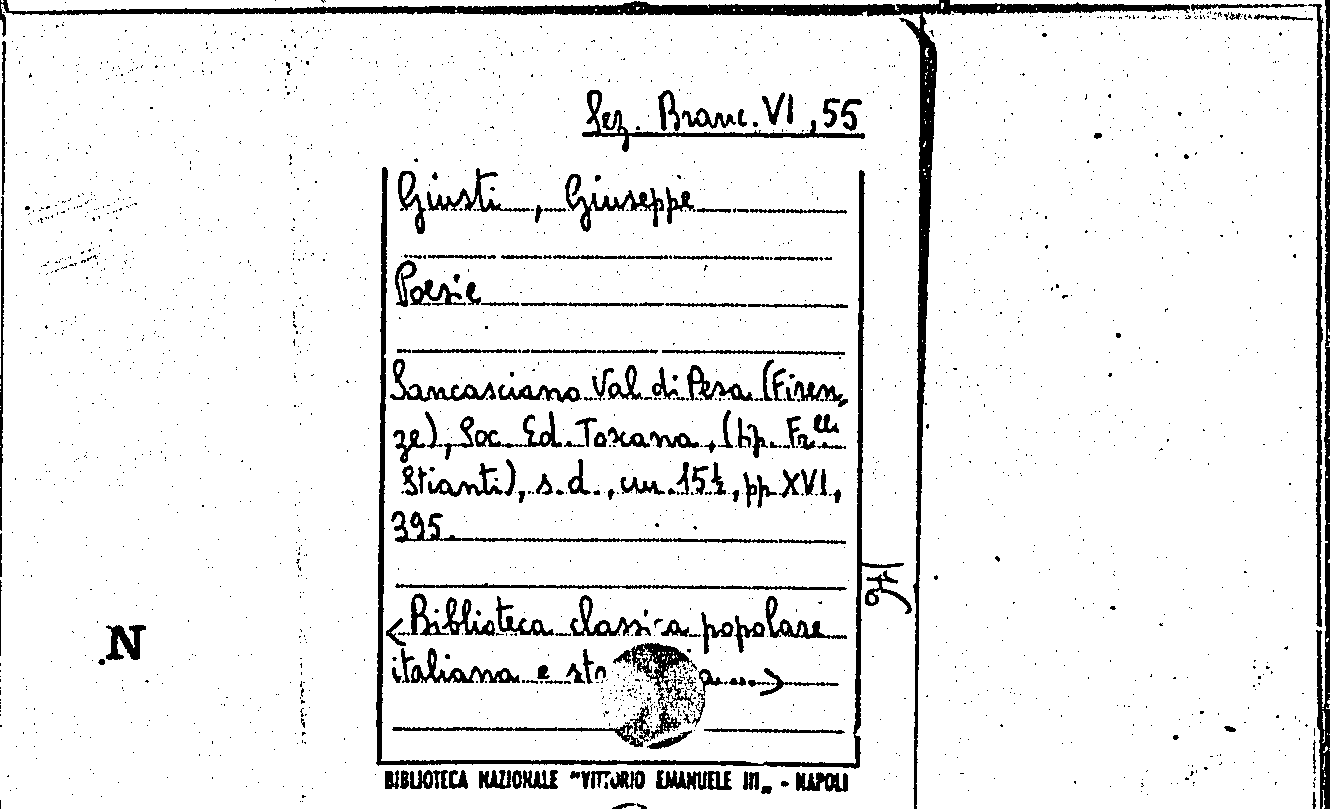 Sez. Branc. VI, 55
Giusti, Giuseppe
Poesie
Sancasciano Val di Pesa (Firen-
ze), Soc. Ed. Toscana, (tip. Fr.lli
Stianti), s.d., cm. 15½, pp. XVI,
395.
<Biblioteca classica popolare
italiana e sto a...>
N
BIBLIOTECA NAZIONALE "VITTORIO EMANUELE III„ - NAPOLI